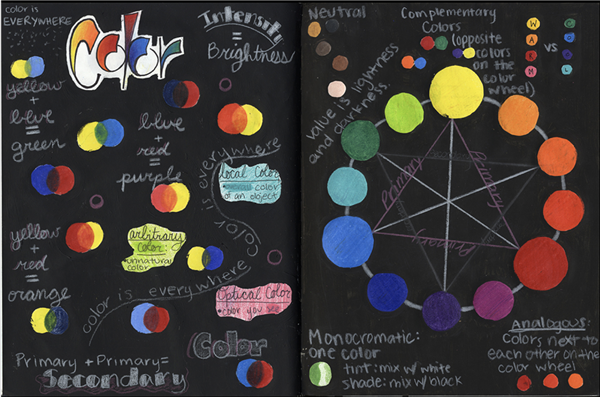 color is
EVERYWHERE
Color
Intensity
=
Brightness
yellow
+
blue
=
green
blue
+
red
=
purple
yellow
+
red
=
orange
arbitrary
color:
unnatural
color
Local Color
color
of an object
Optical Color
• color you see
color is everywhere color is everywhere
Color
Primary + Primary =
Secondary
Neutral
value is lightness
and darkness.
Complementary
Colors
(opposite
colors
on the
color
wheel)
W
A
R
M
VS
C
O
O
L
Primary
Primary
Primary
Monocromatic:
one color
tint: mix w/ white
shade: mix w/ black
Analogous:
Colors next to
each other on the
color wheel